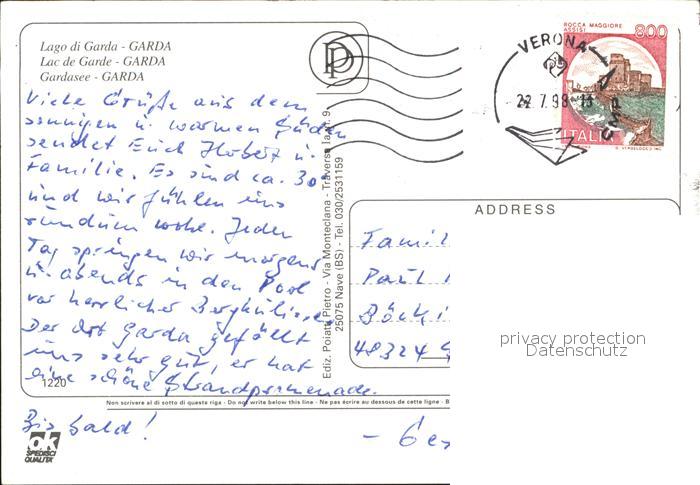 Lago di Garda - GARDA
Lac de Garde - GARDA
Gardasee - GARDA
Viele Grüße aus dem
sonnigen u. warmen Süden
sendet Euch Hubert u.
Familie. Es sind ca. 30°
und wir fühlen uns
rundum wohl. Jeden
Tag springen wir morgens
u. abends in den Pool
vor herrlicher Bergkulisse.
Der Ort Garda gefällt
uns sehr gut, er hat
eine schöne Strandpromenade.
1220
Bis bald!
ok
SPEDISCI
QUALITA'
Ediz. Poiatti Pietro - Via Monteclana - Traversa Ia, n. 9
25075 Nave (BS) - Tel. 030/2531159
Non scrivere al di sotto di queste riga - Do not write below this line - Ne pas écrire au dessous de cette ligne - B
PP
VERONA
22.7.98-13
CMP
ROCCA MAGGIORE
ASSISI
800
ITALIA
ADDRESS
Famil
Paul
Böcki
48324 S
privacy protection
Datenschutz